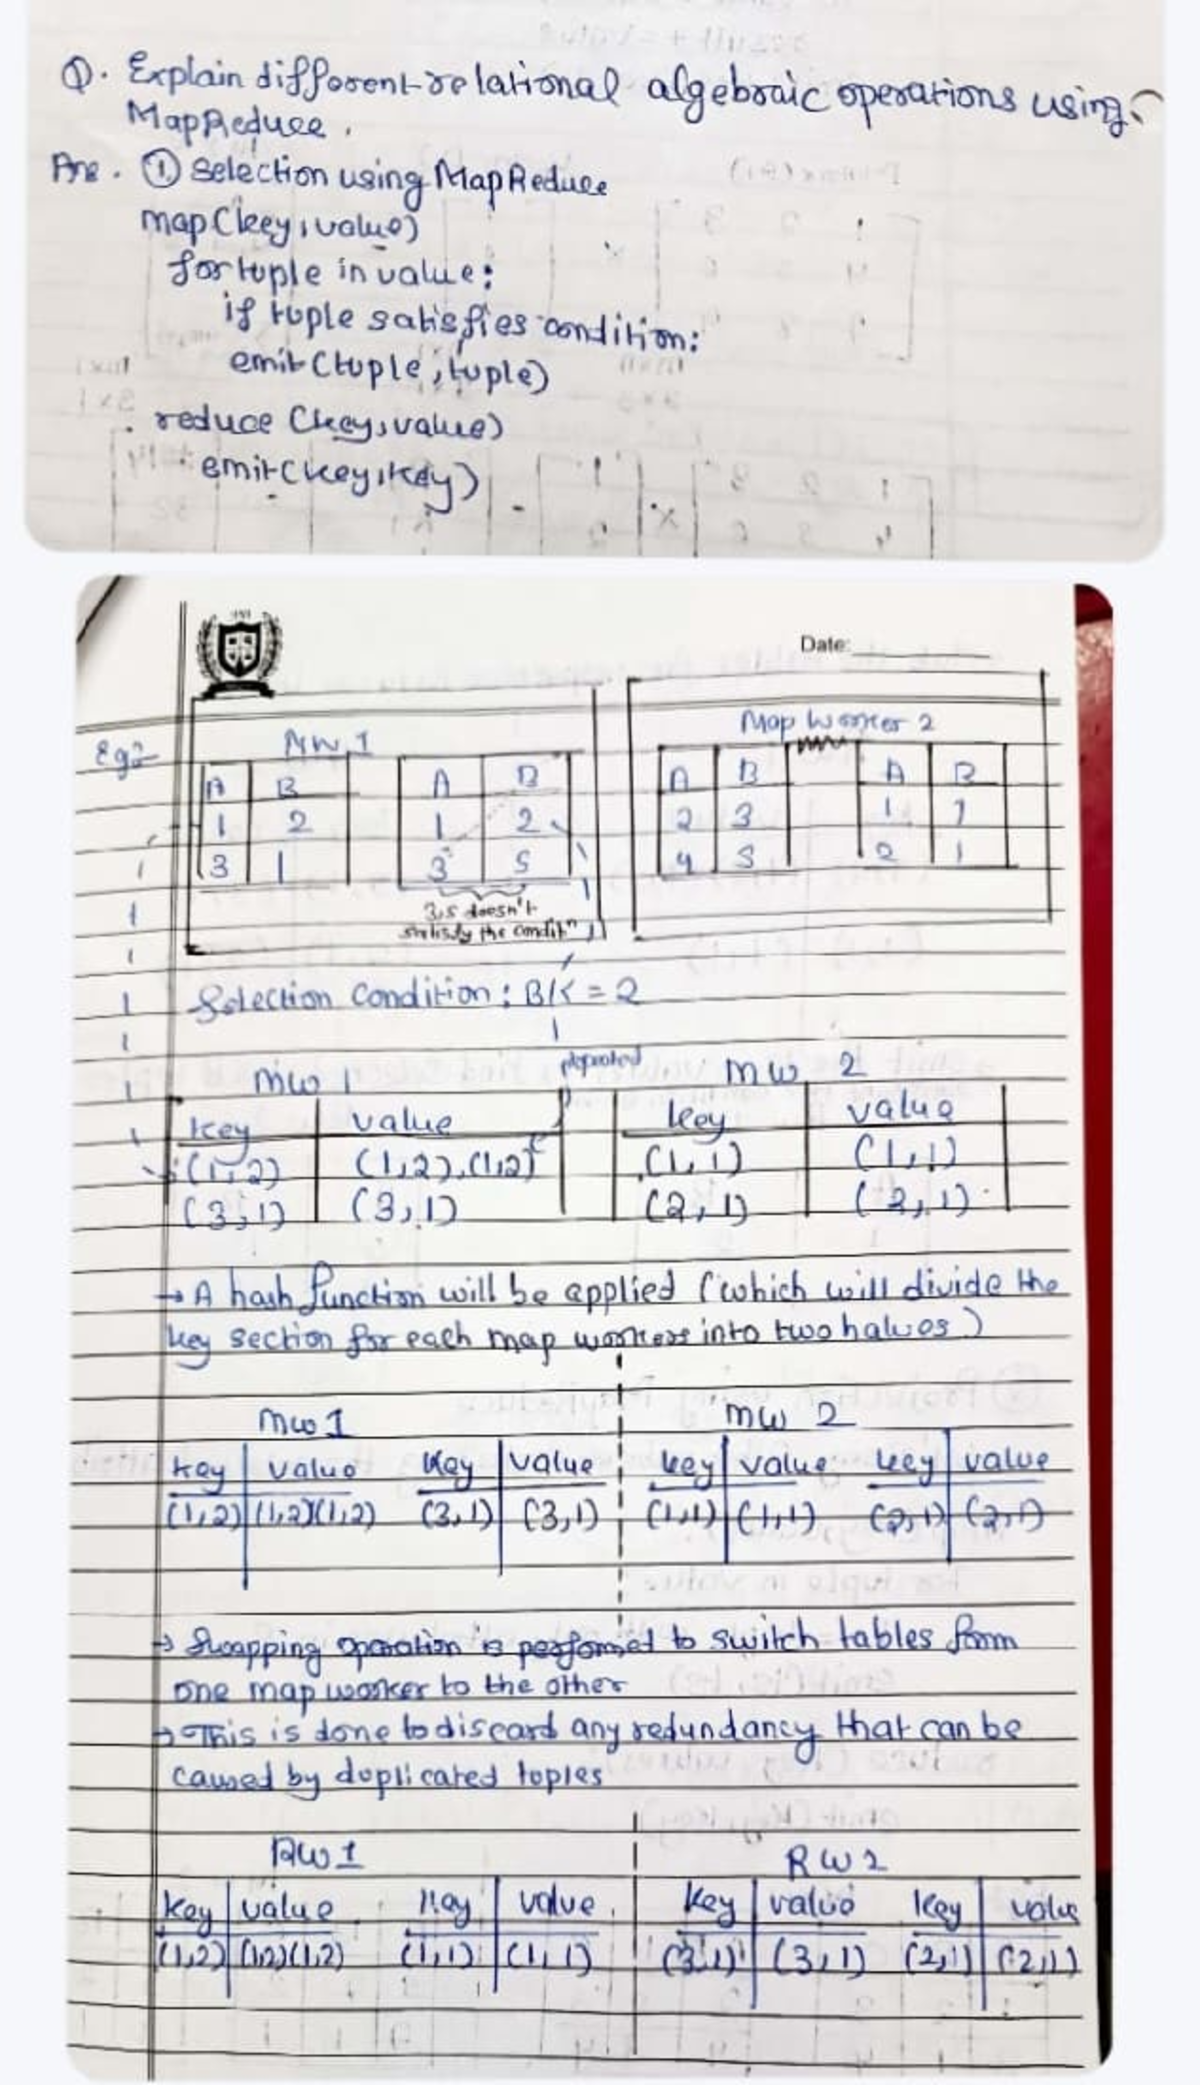 Q. Explain different relational algebraic operations using
MapReduce.
Ans. ① Selection using MapReduce
map(key, value)
for tuple in value:
if tuple satisfies condition:
emit (tuple, tuple)
reduce (key, value)
emit(key, key)
Date:
Eg:-
MW 1
Map Worker 2
A B A B A B A B
1 2 1 2 2 3 1 1
3 1 3 5 4 5 2 1
3,5 doesn't
satisfy the conditn
Selection Condition : B/< = 2
repeated
MW 1 MW 2
key value key value
(1,2) (1,2),(1,2) (1,1) (1,1)
(3,1) (3,1) (2,1) (2,1)
→ A hash function will be applied (which will divide the
key section for each map workers into two halves)
MW 1 MW 2
key value key value key value key value
(1,2) (1,2)(1,2) (3,1) (3,1) (1,1) (1,1) (2,1) (2,1)
→ Swapping operation is performed to switch tables from
one map worker to the other
→ This is done to discard any redundancy that can be
caused by duplicated tuples
RW 1 RW 2
key value key value key value key value
(1,2) (1,2)(1,2) (1,1) (1,1) (3,1) (3,1) (2,1) (2,1)